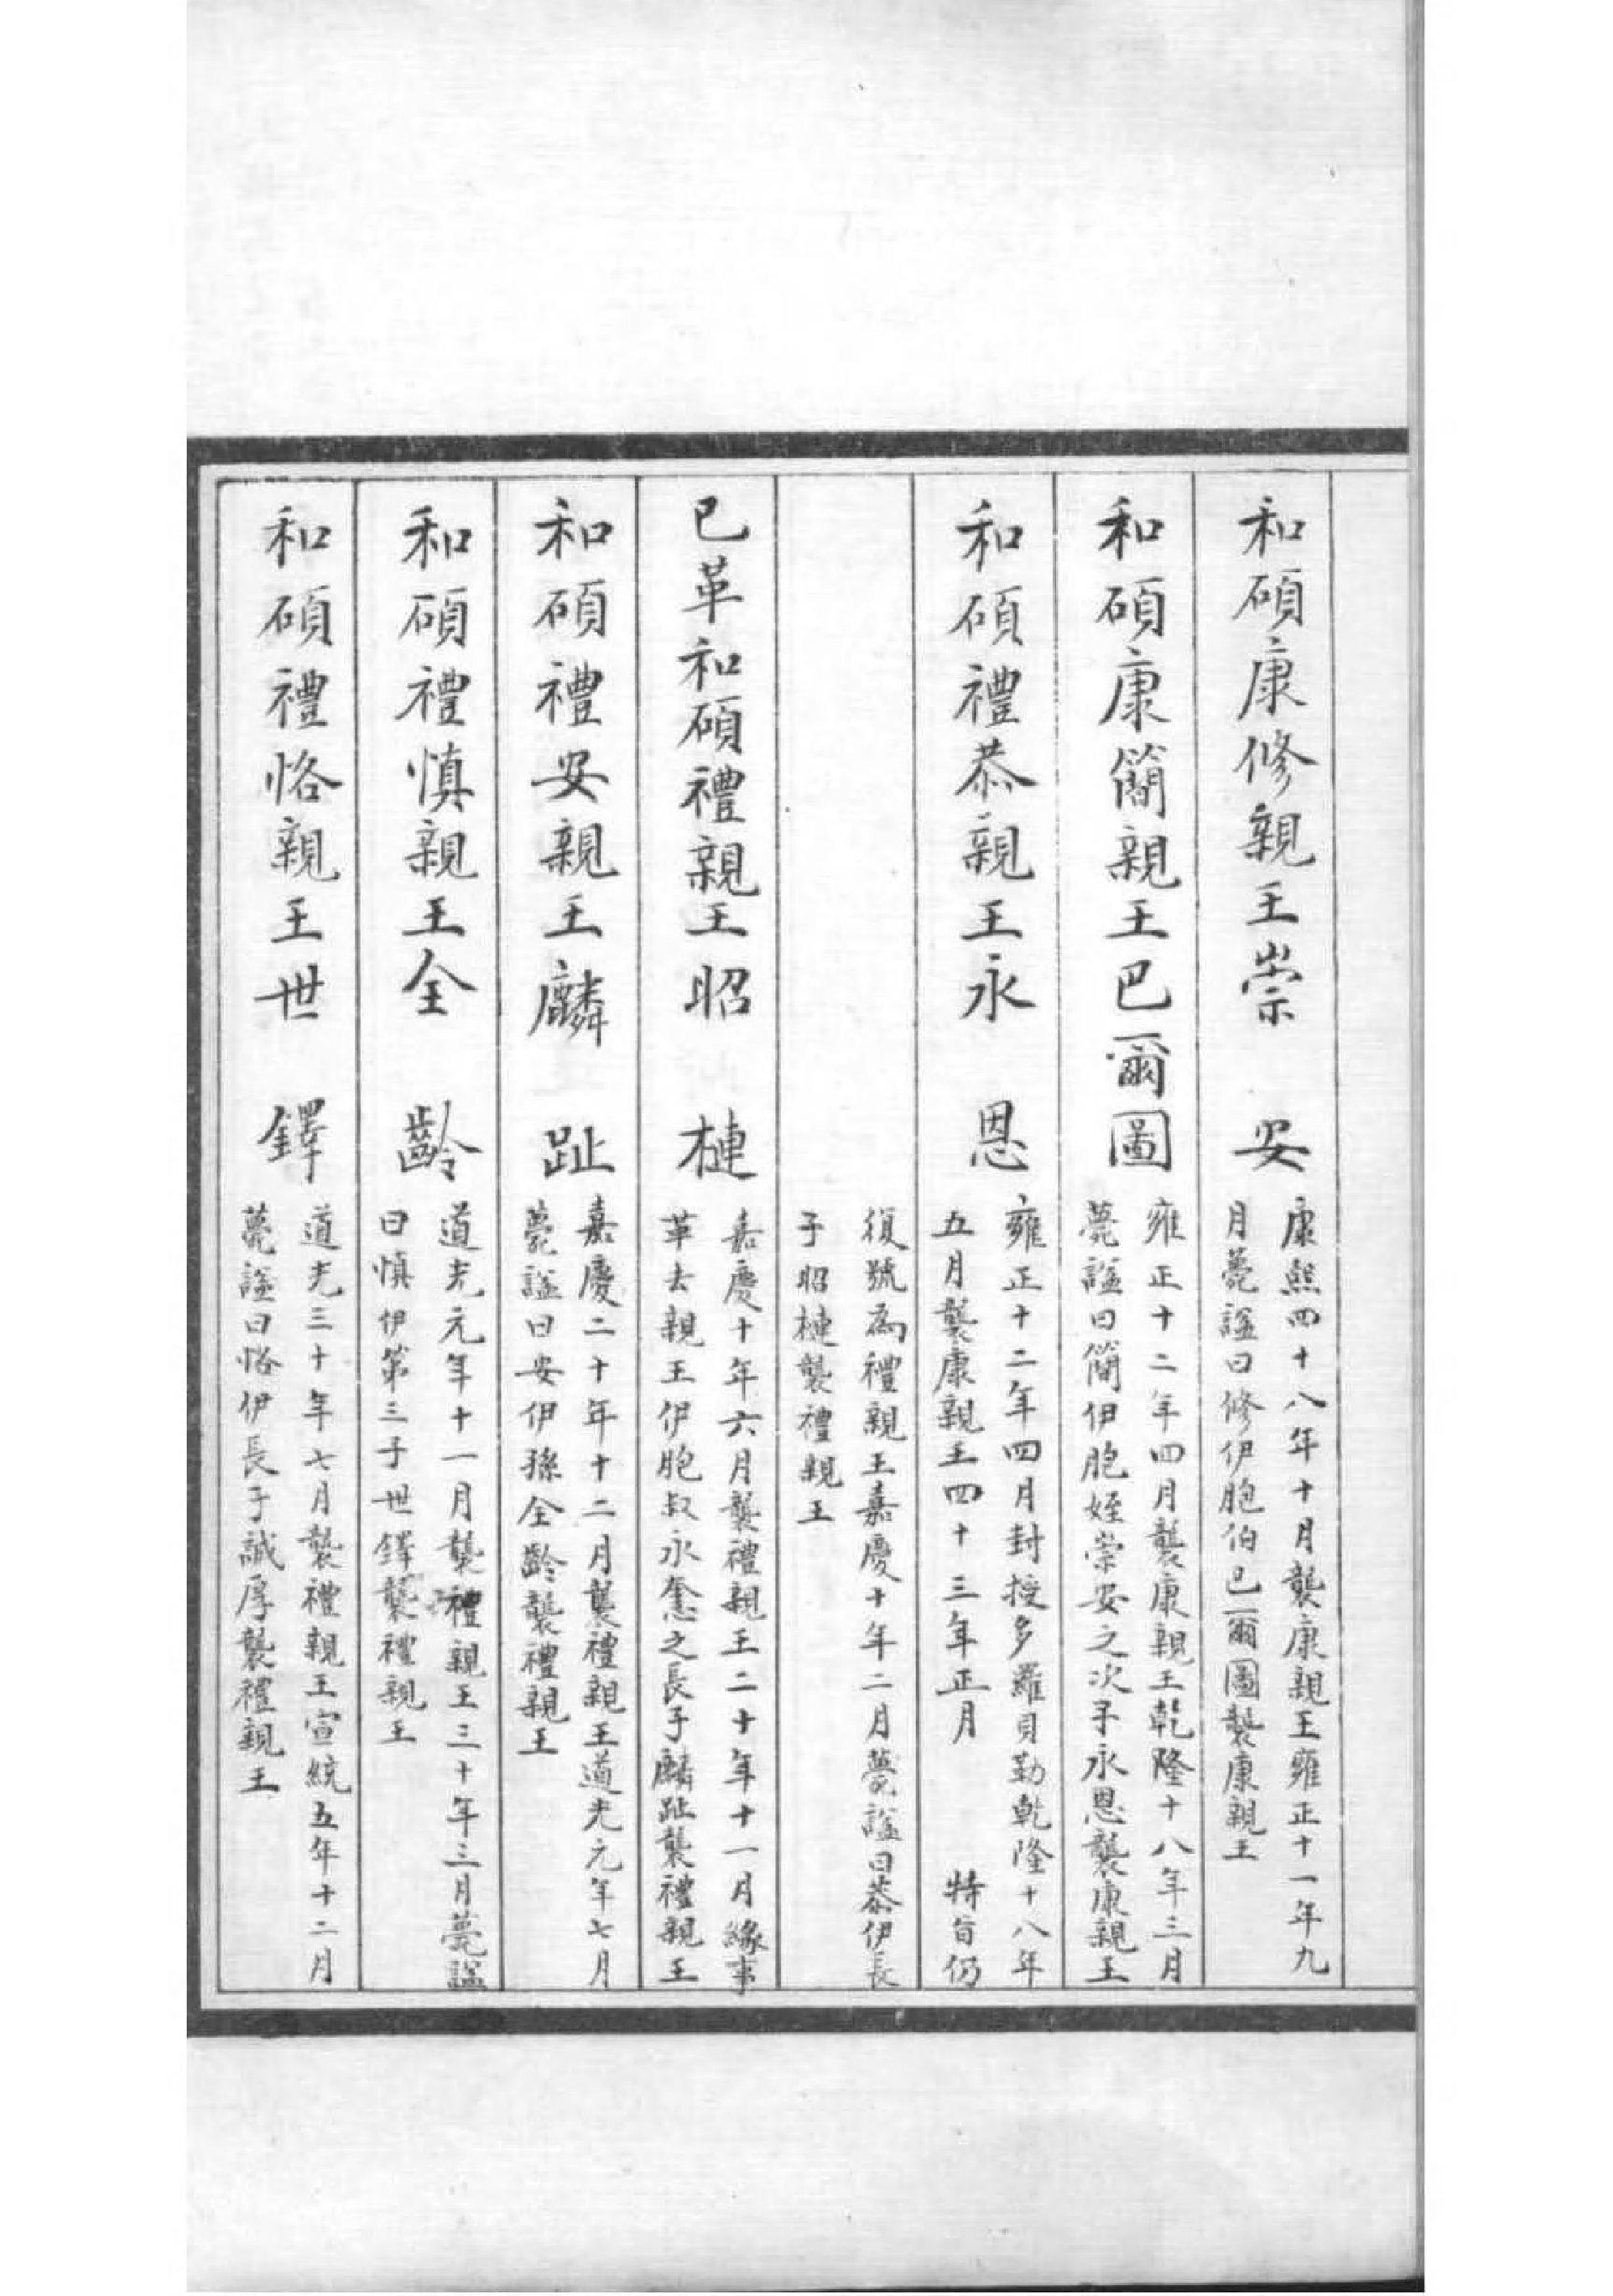 和碩康修親王崇安
康熙四十八年十月襲康親王雍正十一年九
月薨諡曰修伊胞伯巴爾圖襲康親王
和碩康簡親王巴爾圖
雍正十二年四月襲康親王乾隆十八年三月
薨諡曰簡伊胞姪崇安之次子永恩襲康親王
和碩禮恭親王永恩
雍正十二年四月封授多羅貝勒乾隆十八年
五月襲康親王四十三年正月 特旨仍
復號為禮親王嘉慶十年二月薨諡曰恭伊長
子昭槤襲禮親王
已革和碩禮親王昭槤
嘉慶十年六月襲禮親王二十年十一月緣事
革去親王伊胞叔永𢠔之長子麟趾襲禮親王
和碩禮安親王麟趾
嘉慶二十年十二月襲禮親王道光元年七月
薨諡曰安伊孫全齡襲禮親王
和碩禮慎親王全齡
道光元年十一月襲禮親王三十年三月薨諡
曰慎伊第三子世鐸襲禮親王
和碩禮恪親王世鐸
道光三十年七月襲禮親王宣統五年十二月
薨諡曰恪伊長子誠厚襲禮親王